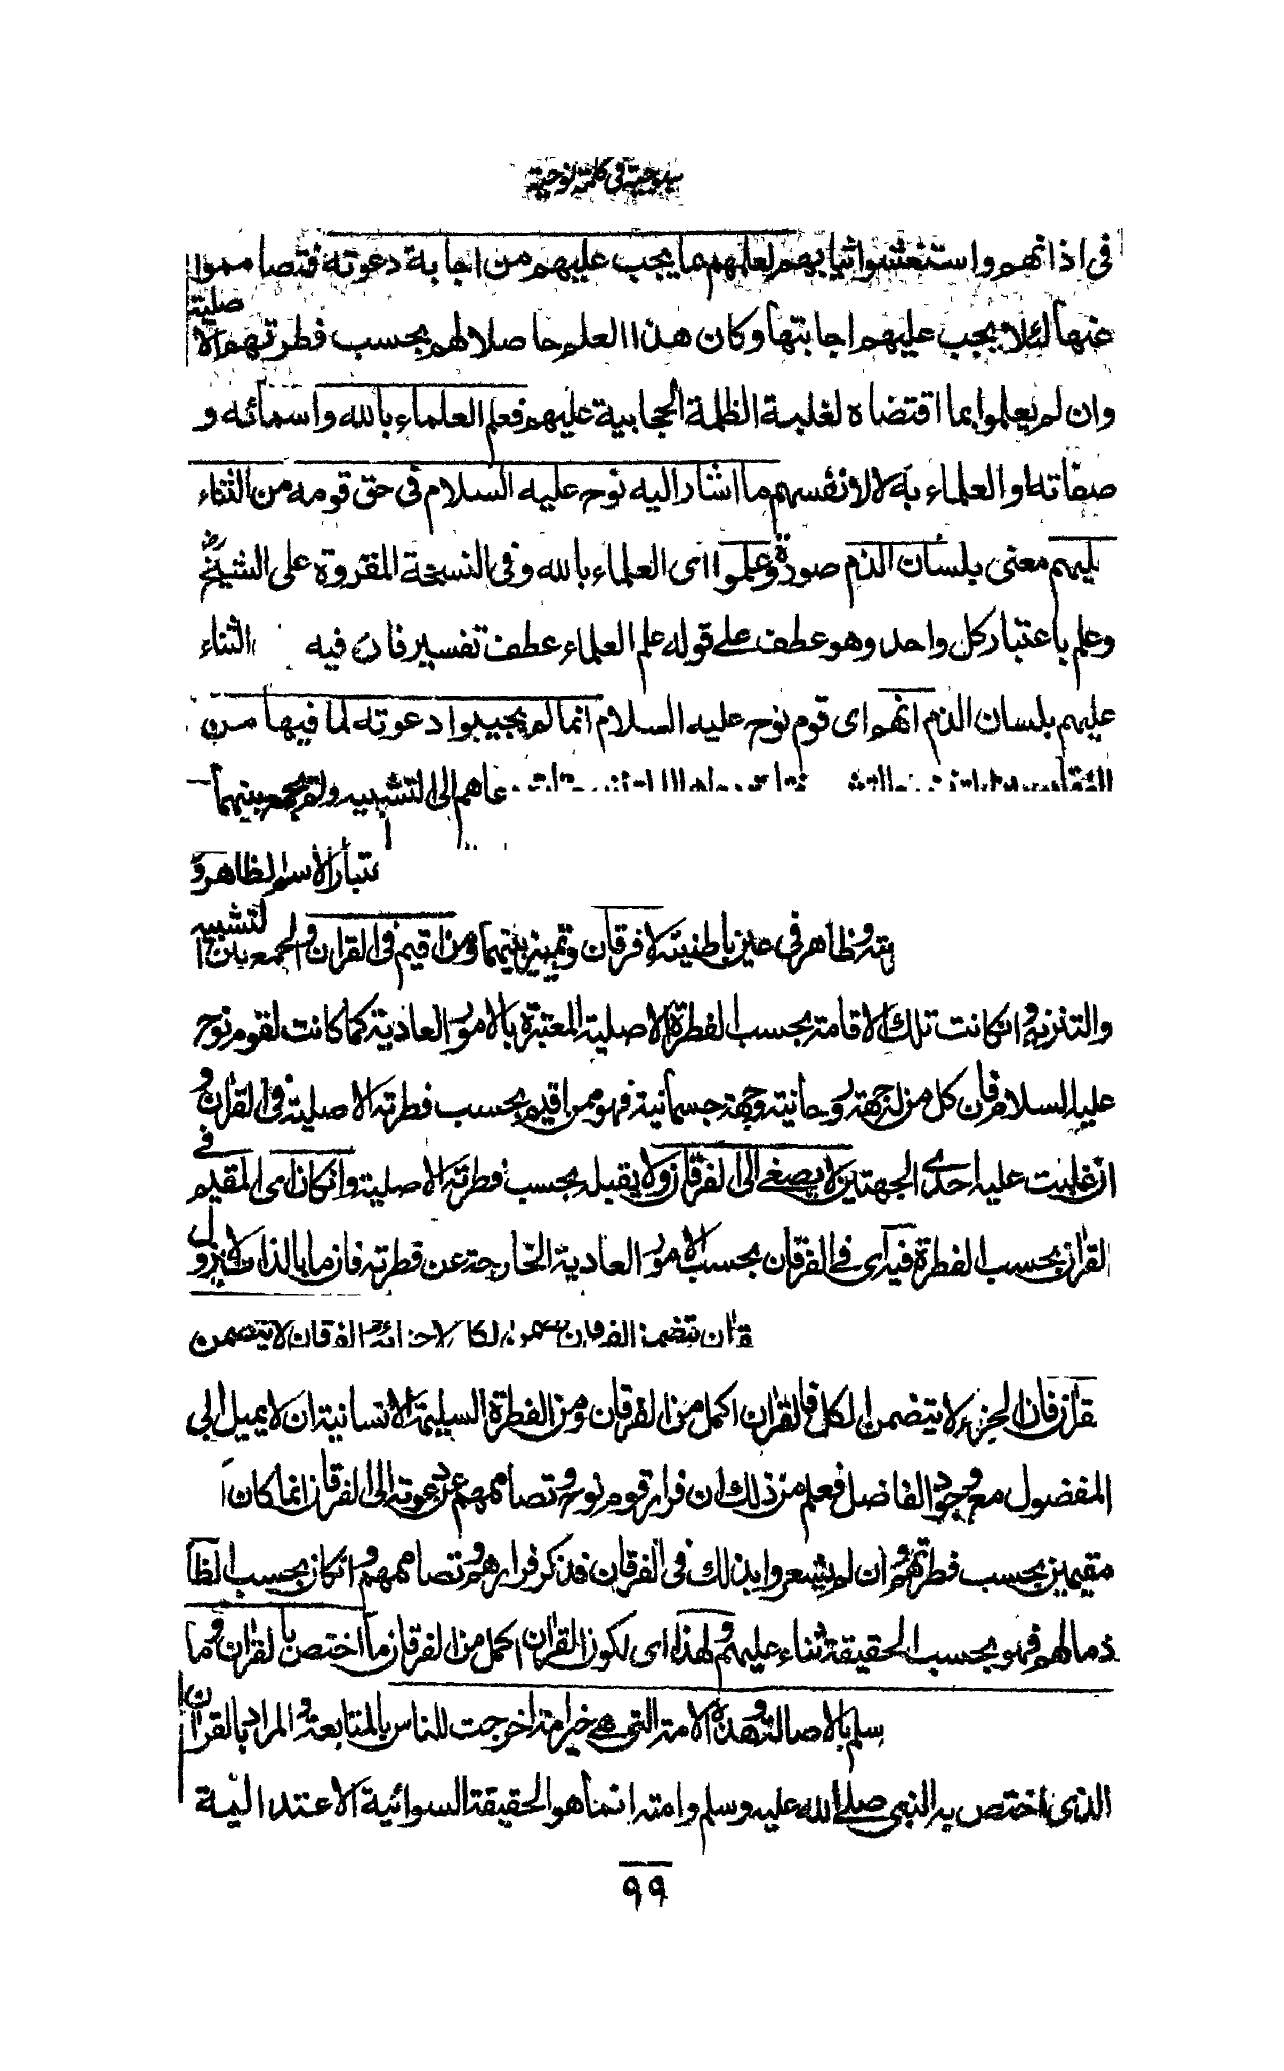 سبوحية في كلمة نوحية
في اذانهم واستغشوا ثيابهم لعلمهم بما يجب عليهم من اجابة دعوته فتصامموا
عنها لئلا يجب عليهم اجابتها وكان هذا العلم حاصلا لهم بحسب فطرتهم الاصلية
وان لم يعلموا بما اقتضاه لغلبة الظلمة الحجابية عليهم فعلم العلماء بالله واسمائه و
صفاته والعلماء به لا لانفسهم ما اشار اليه نوح عليه السلام في حق قومه من الثناء
عليهم معنى بلسان الذم صورة وعلموا اى العلماء بالله وفي النسخة المقروة على الشيخ رض
وعلم باعتبار كل واحد وهو عطف على قوله علم العلماء عطف تفسير فان فيه الثناء
عليهم بلسان الذم انهم اى قوم نوح عليه السلام انما لم يجيبوا دعوته لما فيها من
الى التشبيه ولم يجمع بينهما
الاسم الظاهر و
وظاهر في عين باطنيته لا فرقان وتمييز بينهما ومن اقيم في القران والجمع بين التشبيه
والتنزيه وان كانت تلك الاقامة بحسب الفطرة الاصلية المعتبرة بالامور العادية كما كانت لقوم نوح
عليه السلام فان كل من له جهة روحانية وجهة جسمانية فهو ممن اقيم بحسب فطرته الاصلية في القران و
ان غلبت عليه احدى الجهتين لا يصغى الى الفرقان ولا يقبله بحسب فطرته الاصلية وان كان اى المقيم في
القران بحسب الفطرة فيه اى في الفرقان بحسب الامور العادية الخارجة عن فطرته فان ما بالذات لا يزول
الفرقان لا يتضمن
القران فان الجزء لا يتضمن الكل فالقران اكمل من الفرقان ومن الفطرة السليمة الانسانية ان لا يميل الى
المفضول مع وجود الفاضل فعلم من ذلك ان فرار قوم نوح وتصاممهم عن دعوته الى الفرقان انما كان
مقيمين بحسب فطرتهم وان لم يشعروا بذلك في الفرقان فذكر فرارهم وتصاممهم وان كان بحسب الظا
ذما لهم فهو بحسب الحقيقة ثناء عليهم ولهذا اى لكون القران اكمل من الفرقان ما اختص بالقران وما
سلم بالاصالة وهذه الامة التي هي خير امة اخرجت للناس بالمتابعة والمراد بالقران
الذى اختص به النبي صلى الله عليه وسلم وامته انما هو الحقيقة السوائية الاعتدالية
٩٩